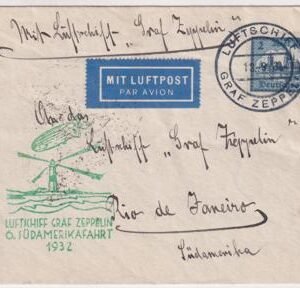 Mit Luftschiff "Graf Zeppelin"
LUFTSCHIFF
GRAF ZEPPELIN
MIT LUFTPOST
PAR AVION
An das
Luftschiff "Graf Zeppelin"
Rio de Janeiro
Südamerika
LUFTSCHIFF GRAF ZEPPELIN
6. SÜDAMERIKAFAHRT
1932